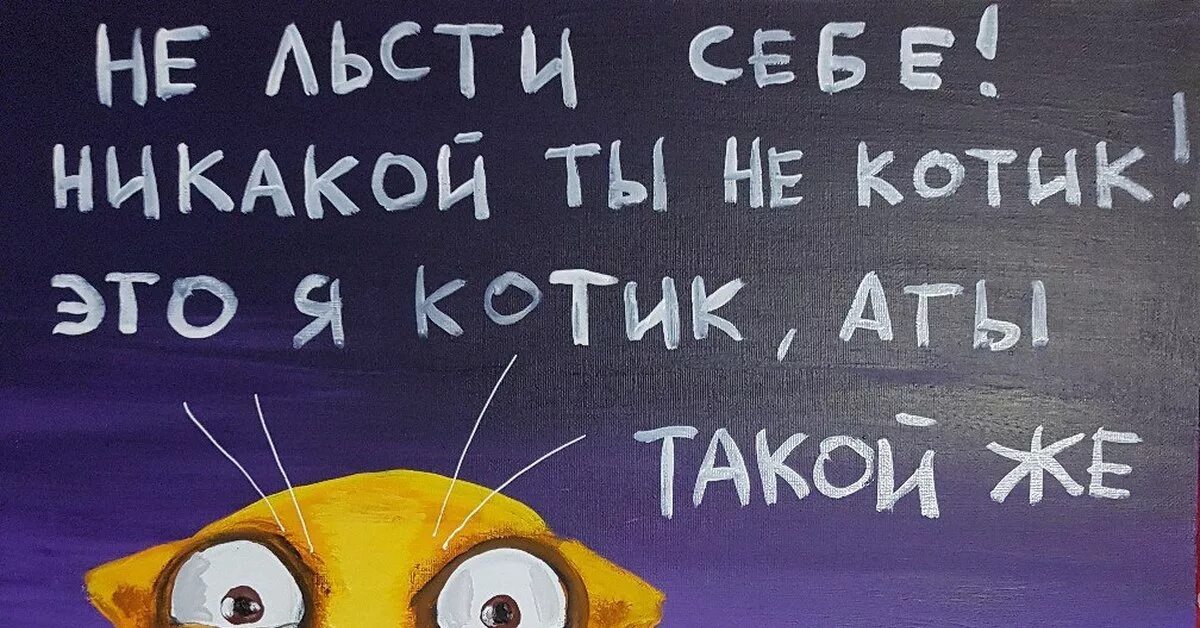 НЕ ЛЬСТИ СЕБЕ!
НИКАКОЙ ТЫ НЕ КОТИК!
ЭТО Я КОТИК, А ТЫ
ТАКОЙ ЖЕ